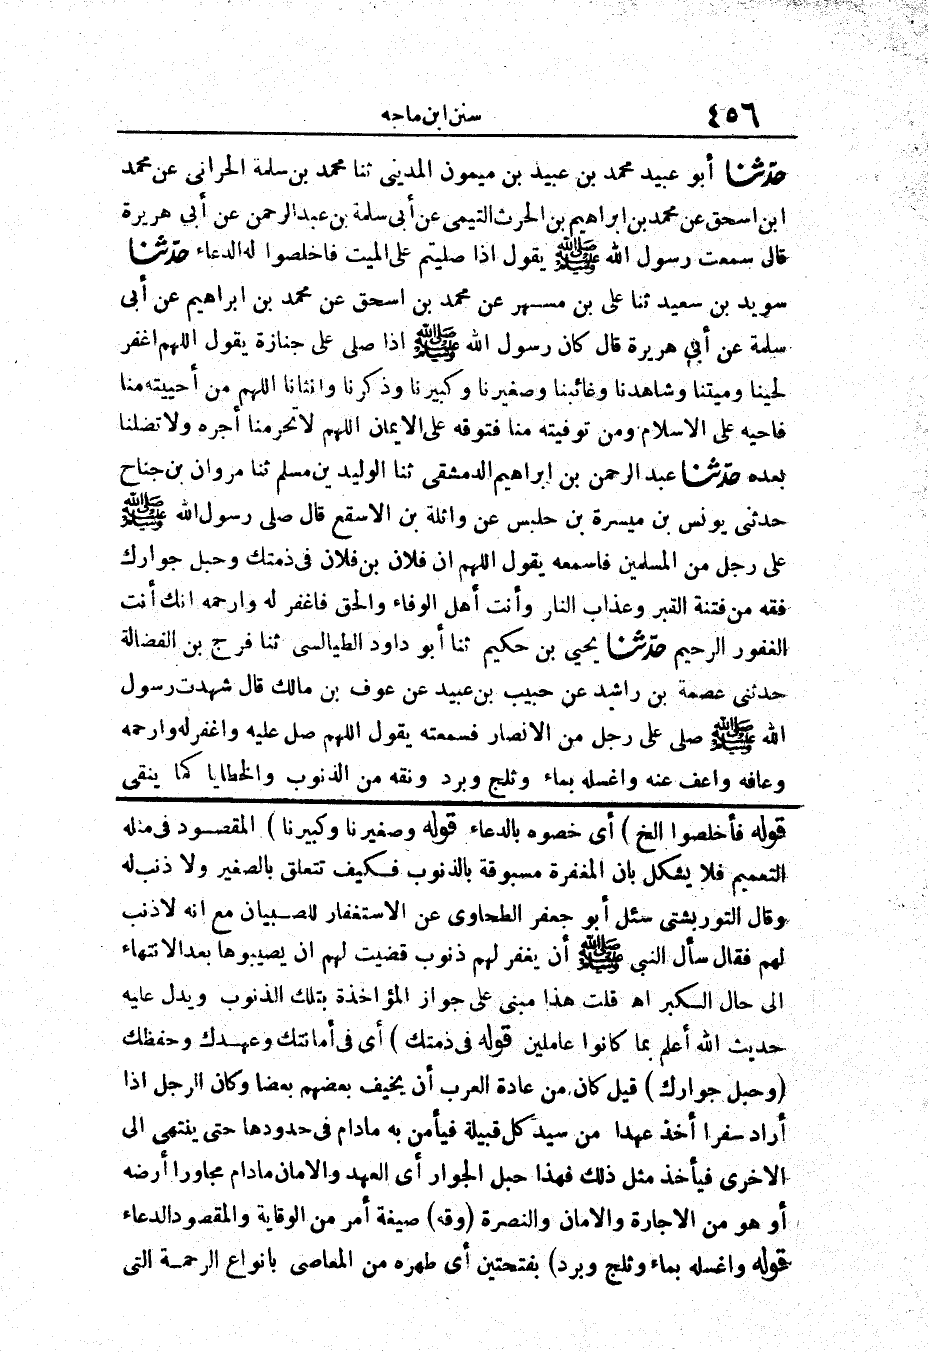 ٤٥٦ سنن ابن ماجه
حدّثنا أبو عبيد محمد بن عبيد بن ميمون المدينى ثنا محمد بن سلمة الحرانى عن محمد
ابن اسحق عن محمد بن ابراهيم بن الحرث التيمى عن أبى سلمة بن عبد الرحمن عن أبي هريرة
قال سمعت رسول الله ﷺ يقول اذا صليتم على الميت فاخلصوا له الدعاء حدّثنا
سويد بن سعيد ثنا على بن مسهر عن محمد بن اسحق عن محمد بن ابراهيم عن أبى
سلمة عن أبي هريرة قال كان رسول الله ﷺ اذا صلى على جنازة يقول اللهم اغفر
لحينا وميتنا وشاهدنا وغائبنا وصغيرنا وكبيرنا وذكرنا وانثانا اللهم من أحييته منا
فاحيه على الاسلام ومن توفيته منا فتوقه على الايمان اللهم لاتحرمنا أجره ولا تضلنا
بعده حدّثنا عبد الرحمن بن ابراهيم الدمشقى ثنا الوليد بن مسلم ثنا مروان بن جناح
حدثنى يونس بن ميسرة بن حلبس عن واثلة بن الاسقع قال صلى رسول الله ﷺ
على رجل من المسلمين فاسمعه يقول اللهم ان فلان بن فلان فى ذمتك وحبل جوارك
فقه من فتنة القبر وعذاب النار وأنت أهل الوفاء والحق فاغفر له وارحمه انك أنت
الغفور الرحيم حدّثنا يحيي بن حكيم ثنا أبو داود الطيالسى ثنا فرج بن الفضالة
حدثنى عصمة بن راشد عن حبيب بن عبيد عن عوف بن مالك قال شهدت رسول
الله ﷺ صلى على رجل من الانصار فسمعته يقول اللهم صل عليه واغفر له وارحمه
وعافه واعف عنه واغسله بماء وثلج وبرد ونقه من الذنوب والخطايا كما ينقى
قوله فأخلصوا الخ) أى خصوه بالدعاء قوله وصغيرنا وكبيرنا) المقصود فى مثله
التعميم فلا يشكل بان المغفرة مسبوقة بالذنوب فكيف تتعلق بالصغير ولا ذنب له
وقال التوربشتى سئل أبو جعفر الطحاوى عن الاستغفار للصبيان مع انه لاذنب
لهم فقال سأل النبي ﷺ أن يغفر لهم ذنوب قضيت لهم ان يصيبوها بعد الانتهاء
الى حال الكبر اه قلت هذا مبنى على جواز المؤاخذة بتلك الذنوب ويدل عليه
حديث الله أعلم بما كانوا عاملين قوله فى ذمتك) أى فى أمانتك وعهدك وحفظك
(وحبل جوارك) قيل كان من عادة العرب أن يخيف بعضهم بعضا وكان الرجل اذا
أراد سفرا أخذ عهدا من سيد كل قبيلة فيأمن به مادام فى حدودها حتى ينتهى الى
الاخرى فيأخذ مثل ذلك فهذا حبل الجوار أى العهد والامان مادام مجاورا أرضه
أو هو من الاجارة والامان والنصرة (وقه) صيغة أمر من الوقاية والمقصود الدعاء
قوله واغسله بماء وثلج وبرد) بفتحتين أى طهره من المعاصى بانواع الرحمة التى